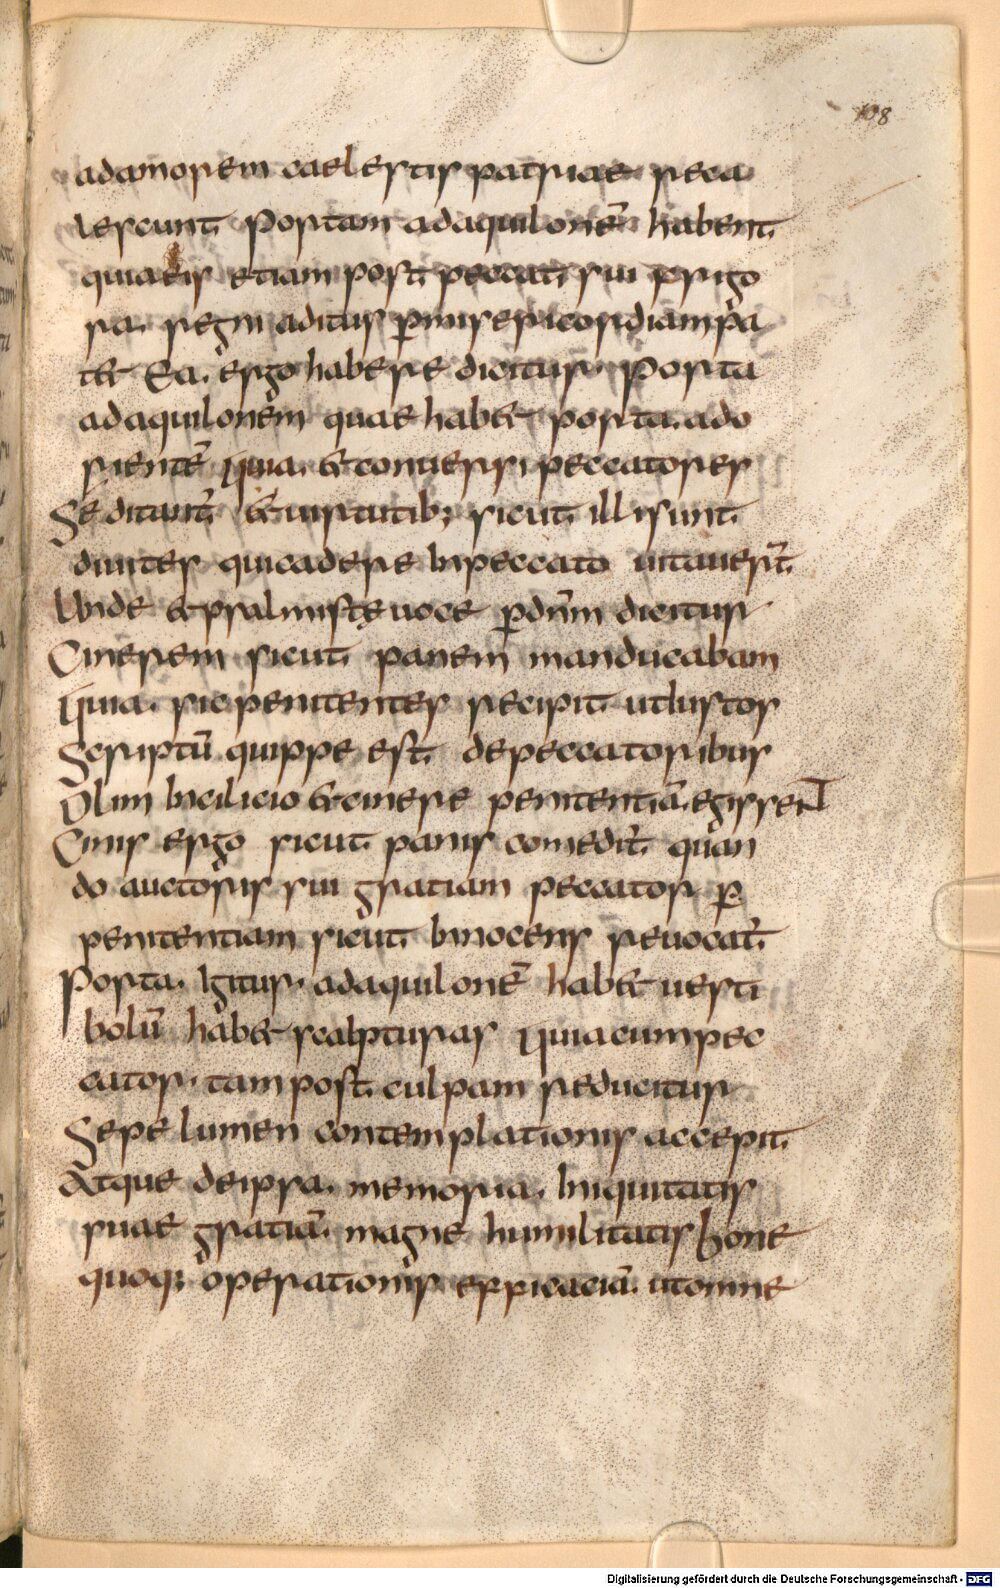 108
adamorem caelestis patriae reca
lescunt. Portam adaquilonē habent
quia eis etiam post peccati sui frigo
ra. regni aditus p̄ misericordiam pa
t& Ea. ergo habere dicitur. Porta
adaquilonem quae hab& porta. ado
rientē Quia. &conuersi, peccatores
Seditant̄ &uirtutib; sicut illi sunt
diuites quicadere Inpeccato uitauer̄t
Unde &psalmistę uoce p̄ dn̄m dicitur
Cinerem sicut panem manducabam
Quia. sic penitentes recipit. utIustos
Scriptū quippe est. depeccatoribus
Olim Incilicio &cinere penitentiā. egissent
Cinis ergo sicut panis comedit̄ quan
do auctoris sui gratiam peccator p̄
penitentiam sicut Innocens reuocat̄
Porta. Igitur. adaquilonē hab& uesti
bolū hab& scalpturas Quia cum pec
cator. tam post culpam reducitur
Sepe lumen contemplationis accepit.
Atque deipsa. memoria. Iniquitatis
suae gratiā. magne humilitatis bone
quoq; operationis efficaciā. utomne
Digitalisierung gefördert durch die Deutsche Forschungsgemeinschaft - DFG